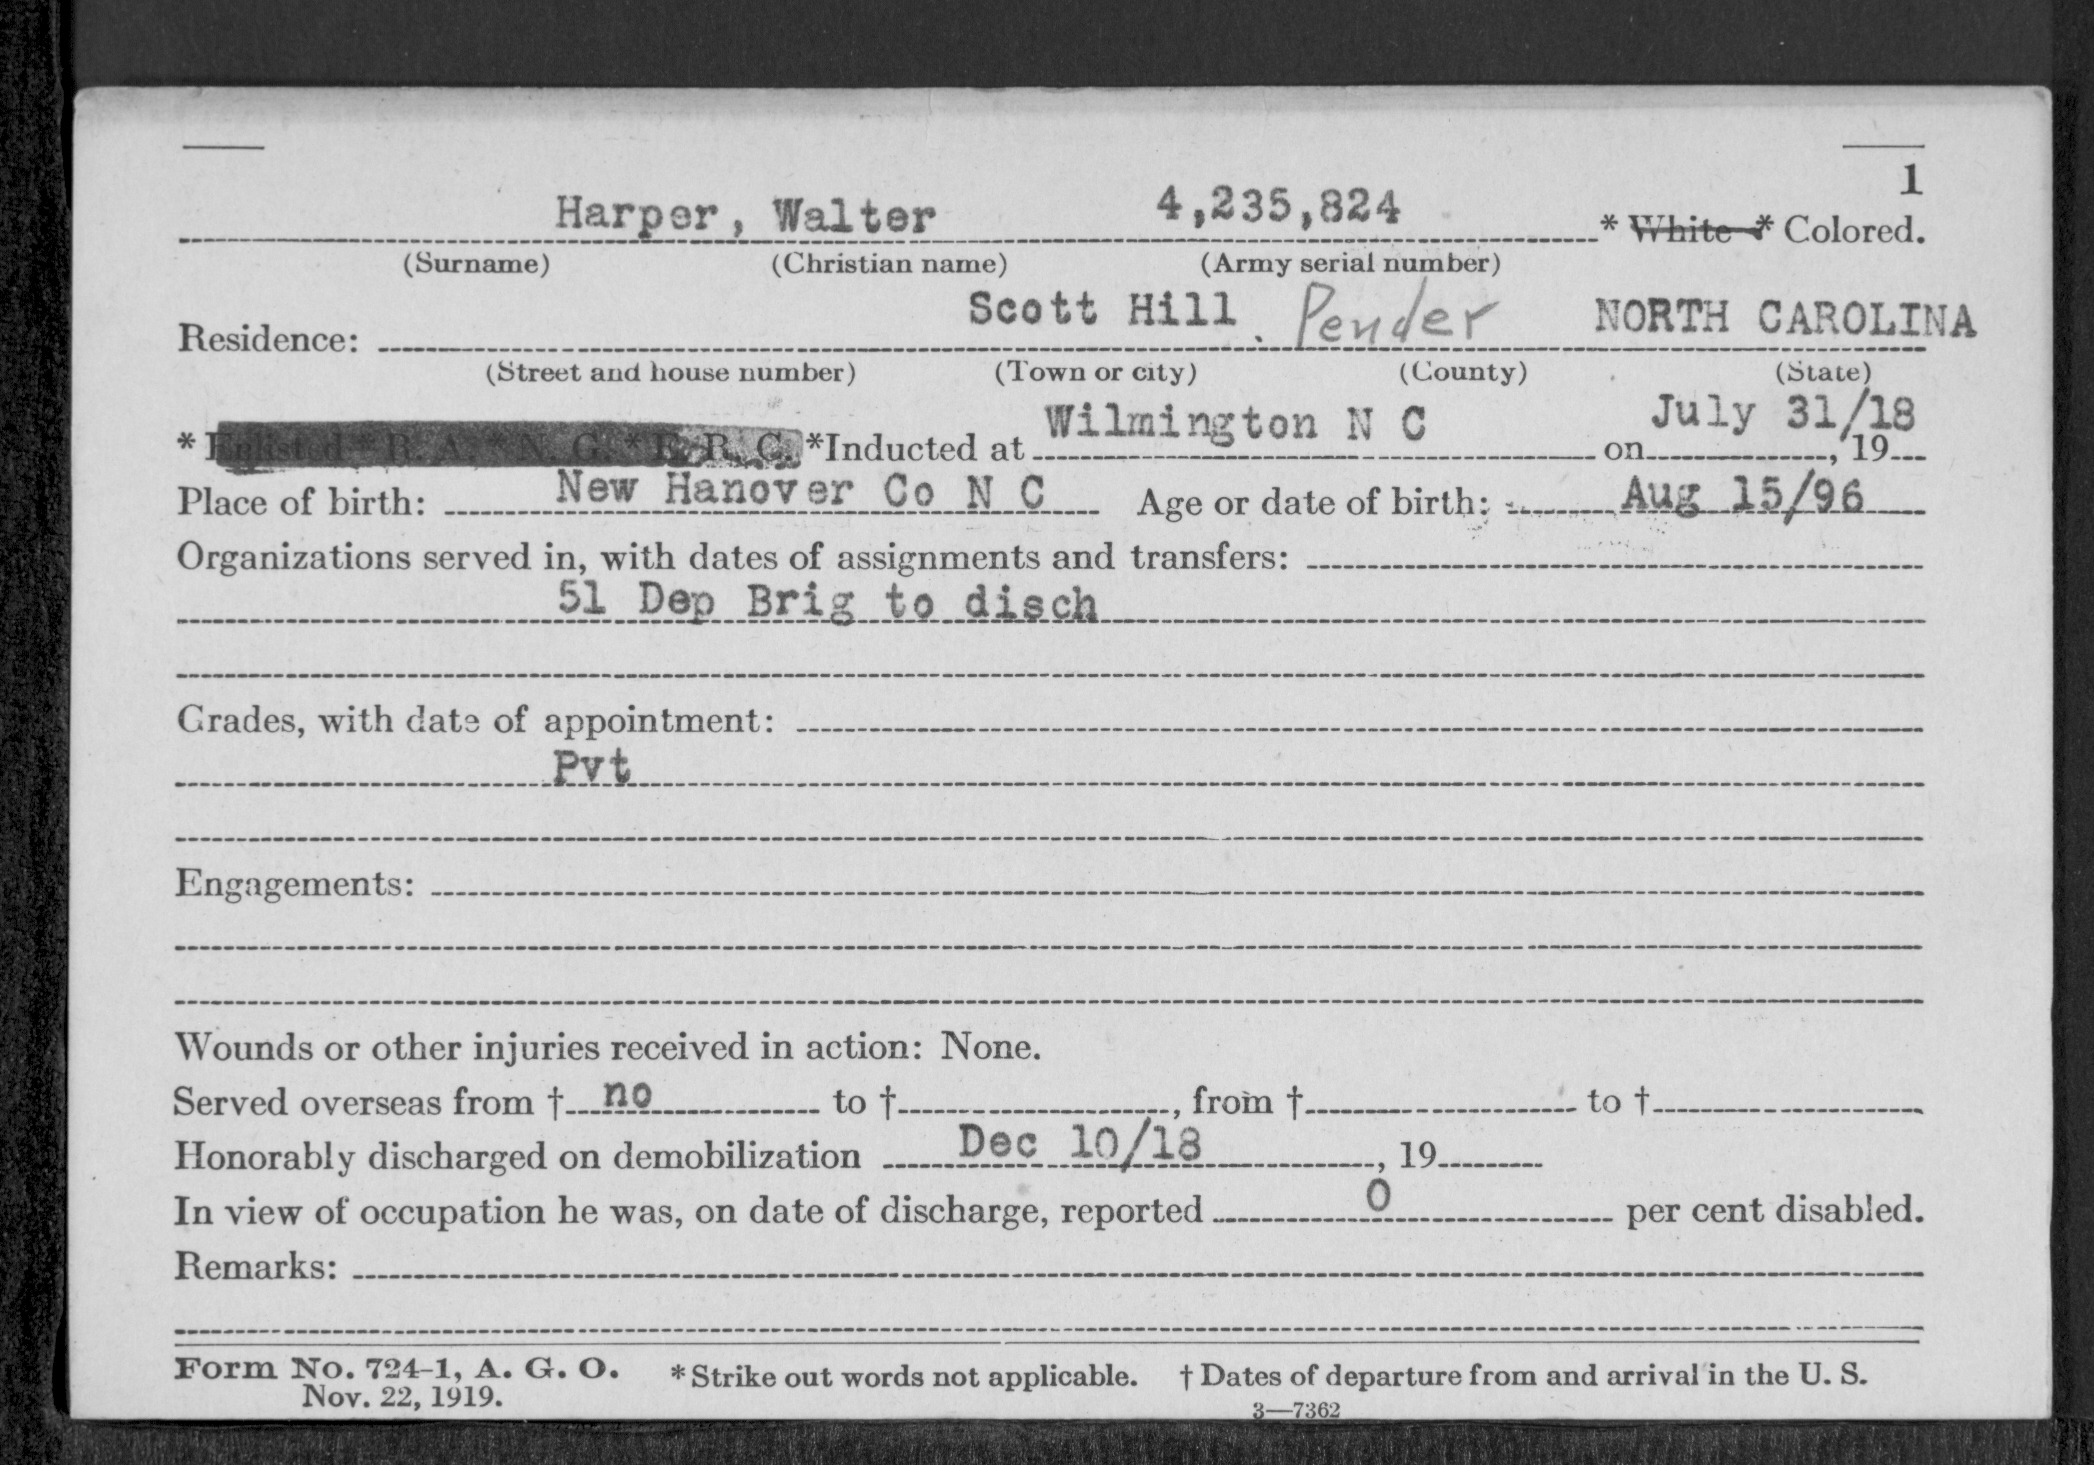 1
Harper, Walter 4,235,824 * White * Colored.
(Surname) (Christian name) (Army serial number)
Residence: Scott Hill . Pender NORTH CAROLINA
(Street and house number) (Town or city) (County) (State)
* Enlisted * R. A. * N. G. * E. R. C. *Inducted at Wilmington N C on July 31/18, 19
Place of birth: New Hanover Co N C Age or date of birth: Aug 15/96
Organizations served in, with dates of assignments and transfers:
51 Dep Brig to disch
Grades, with date of appointment:
Pvt
Engagements:
Wounds or other injuries received in action: None.
Served overseas from † no to †, from † to †
Honorably discharged on demobilization Dec 10/18, 19
In view of occupation he was, on date of discharge, reported 0 per cent disabled.
Remarks:
Form No. 724-1, A. G. O. * Strike out words not applicable. † Dates of departure from and arrival in the U. S.
Nov. 22, 1919.
3—7362